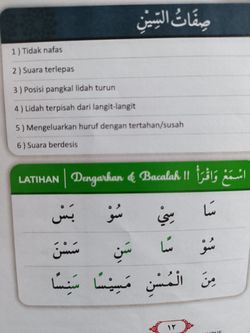 صِفَاتُ السِّيْنِ
1 ) Tidak nafas
2 ) Suara terlepas
3 ) Posisi pangkal lidah turun
4 ) Lidah terpisah dari langit-langit
5 ) Mengeluarkan huruf dengan tertahan/susah
6 ) Suara berdesis
LATIHAN Dengarkan & Bacalah !! اسْمَعْ وَاقْرَأْ
سَا سِيْ سُوْ بَسْ
سُوْ سًا سَنِ سَسْنَ
مِنَ الْمُسْنِ مَسِيْسًا سَنِسًا
١٢